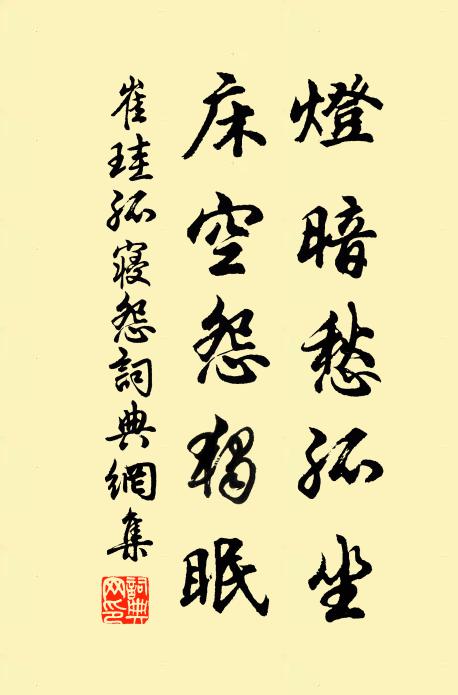 燈暗愁孤坐
床空怨獨眠
崔珪孤寢怨詞典網集
詞典网印